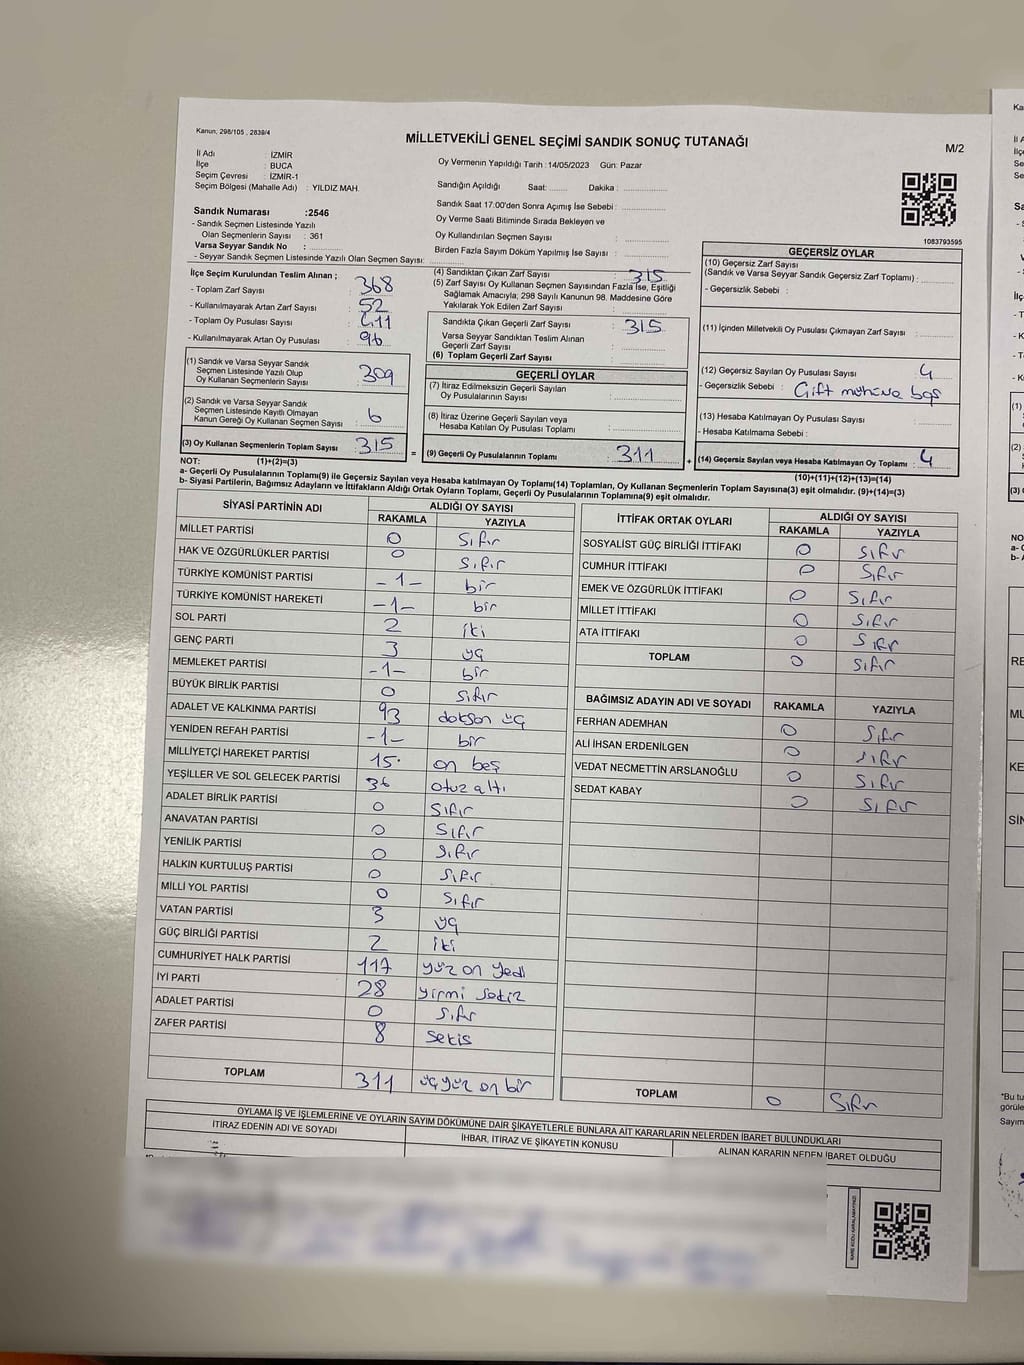 Kanun, 298/105 , 2839/4
MİLLETVEKİLİ GENEL SEÇİMİ SANDIK SONUÇ TUTANAĞI
M/2
İl Adı : İZMİR
İlçe : BUCA
Seçim Çevresi : İZMİR-1
Seçim Bölgesi (Mahalle Adı) : YILDIZ MAH.
Oy Vermenin Yapıldığı Tarih :14/05/2023 Gün: Pazar
Sandığın Açıldığı Saat: Dakika :
Sandık Saat 17:00'den Sonra Açımış İse Sebebi :
Oy Verme Saati Bitiminde Sırada Bekleyen ve
Oy Kullandırılan Seçmen Sayısı :
Birden Fazla Sayım Döküm Yapılmış İse Sayısı :
1083793595
Sandık Numarası :2546
- Sandık Seçmen Listesinde Yazılı
Olan Seçmenlerin Sayısı : 361
Varsa Seyyar Sandık No :
- Seyyar Sandık Seçmen Listesinde Yazılı Olan Seçmen Sayısı:
İlçe Seçim Kurulundan Teslim Alınan ;
- Toplam Zarf Sayısı : 368
- Kullanılmayarak Artan Zarf Sayısı : 52
- Toplam Oy Pusulası Sayısı : 411
- Kullanılmayarak Artan Oy Pusulası : 96
(1) Sandık ve Varsa Seyyar Sandık
Seçmen Listesinde Yazılı Olup
Oy Kullanan Seçmenlerin Sayısı : 309
(2) Sandık ve Varsa Seyyar Sandık
Seçmen Listesinde Kayıtlı Olmayan
Kanun Gereği Oy Kullanan Seçmen Sayısı : 6
(3) Oy Kullanan Seçmenlerin Toplam Sayısı : 315
(4) Sandıktan Çıkan Zarf Sayısı : 315
(5) Zarf Sayısı Oy Kullanan Seçmen Sayısından Fazla İse, Eşitliği
Sağlamak Amacıyla; 298 Sayılı Kanunun 98. Maddesine Göre
Yakılarak Yok Edilen Zarf Sayısı :
Sandıkta Çıkan Geçerli Zarf Sayısı : 315
Varsa Seyyar Sandıktan Teslim Alınan
Geçerli Zarf Sayısı :
(6) Toplam Geçerli Zarf Sayısı :
GEÇERLİ OYLAR
(7) İtiraz Edilmeksizin Geçerli Sayılan
Oy Pusulalarının Sayısı :
(8) İtiraz Üzerine Geçerli Sayılan veya
Hesaba Katılan Oy Pusulası Toplamı :
= (9) Geçerli Oy Pusulalarının Toplamı : 311 +
GEÇERSİZ OYLAR
(10) Geçersiz Zarf Sayısı
(Sandık ve Varsa Seyyar Sandık Geçersiz Zarf Toplamı) :
- Geçersizlik Sebebi :
(11) İçinden Milletvekili Oy Pusulası Çıkmayan Zarf Sayısı :
(12) Geçersiz Sayılan Oy Pusulası Sayısı : 4
- Geçersizlik Sebebi : Çift mühüre
(13) Hesaba Katılmayan Oy Pusulası Sayısı :
- Hesaba Katılmama Sebebi :
(14) Geçersiz Sayılan veya Hesaba Katılmayan Oy Toplamı : 4
NOT: (1)+(2)=(3)
(10)+(11)+(12)+(13)=(14)
a- Geçerli Oy Pusulalarının Toplamı(9) ile Geçersiz Sayılan veya Hesaba katılmayan Oy Toplamı(14) Toplamları, Oy Kullanan Seçmenlerin Toplam Sayısına(3) eşit olmalıdır. (9)+(14)=(3)
b- Siyasi Partilerin, Bağımsız Adayların ve İttifakların Aldığı Ortak Oyların Toplamı, Geçerli Oy Pusulalarının Toplamına(9) eşit olmalıdır.
SİYASİ PARTİNİN ADI ALDIĞI OY SAYISI
RAKAMLA YAZIYLA
MİLLET PARTİSİ 0 Sıfır
HAK VE ÖZGÜRLÜKLER PARTİSİ 0 Sıfır
TÜRKİYE KOMÜNİST PARTİSİ -1- bir
TÜRKİYE KOMÜNİST HAREKETİ -1- bir
SOL PARTİ 2 iki
GENÇ PARTİ 3 üç
MEMLEKET PARTİSİ -1- bir
BÜYÜK BİRLİK PARTİSİ 0 sıfır
ADALET VE KALKINMA PARTİSİ 93 doksan üç
YENİDEN REFAH PARTİSİ -1- bir
MİLLİYETÇİ HAREKET PARTİSİ 15 on beş
YEŞİLLER VE SOL GELECEK PARTİSİ 36 otuz altı
ADALET BİRLİK PARTİSİ 0 Sıfır
ANAVATAN PARTİSİ 0 Sıfır
YENİLİK PARTİSİ 0 Sıfır
HALKIN KURTULUŞ PARTİSİ 0 Sıfır
MİLLİ YOL PARTİSİ 0 Sıfır
VATAN PARTİSİ 3 üç
GÜÇ BİRLİĞİ PARTİSİ 2 iki
CUMHURİYET HALK PARTİSİ 117 yüz on yedi
İYİ PARTİ 28 yirmi sekiz
ADALET PARTİSİ 0 Sıfır
ZAFER PARTİSİ 8 sekis
TOPLAM 311 üçyüz on bir
İTTİFAK ORTAK OYLARI ALDIĞI OY SAYISI
RAKAMLA YAZIYLA
SOSYALİST GÜÇ BİRLİĞİ İTTİFAKI 0 Sıfır
CUMHUR İTTİFAKI 0 Sıfır
EMEK VE ÖZGÜRLÜK İTTİFAKI 0 Sıfır
MİLLET İTTİFAKI 0 Sıfır
ATA İTTİFAKI 0 Sıfır
TOPLAM 0 Sıfır
BAĞIMSIZ ADAYIN ADI VE SOYADI RAKAMLA YAZIYLA
FERHAN ADEMHAN 0 Sıfır
ALİ İHSAN ERDENİLGEN 0 Sıfır
VEDAT NECMETTİN ARSLANOĞLU 0 Sıfır
SEDAT KABAY 0 Sıfır
TOPLAM 0 Sıfır
OYLAMA İŞ VE İŞLEMLERİNE VE OYLARIN SAYIM DÖKÜMÜNE DAİR ŞİKAYETLERLE BUNLARA AİT KARARLARIN NELERDEN İBARET BULUNDUKLARI
İTİRAZ EDENİN ADI VE SOYADI İHBAR, İTİRAZ VE ŞİKAYETİN KONUSU ALINAN KARARIN NEDEN İBARET OLDUĞU